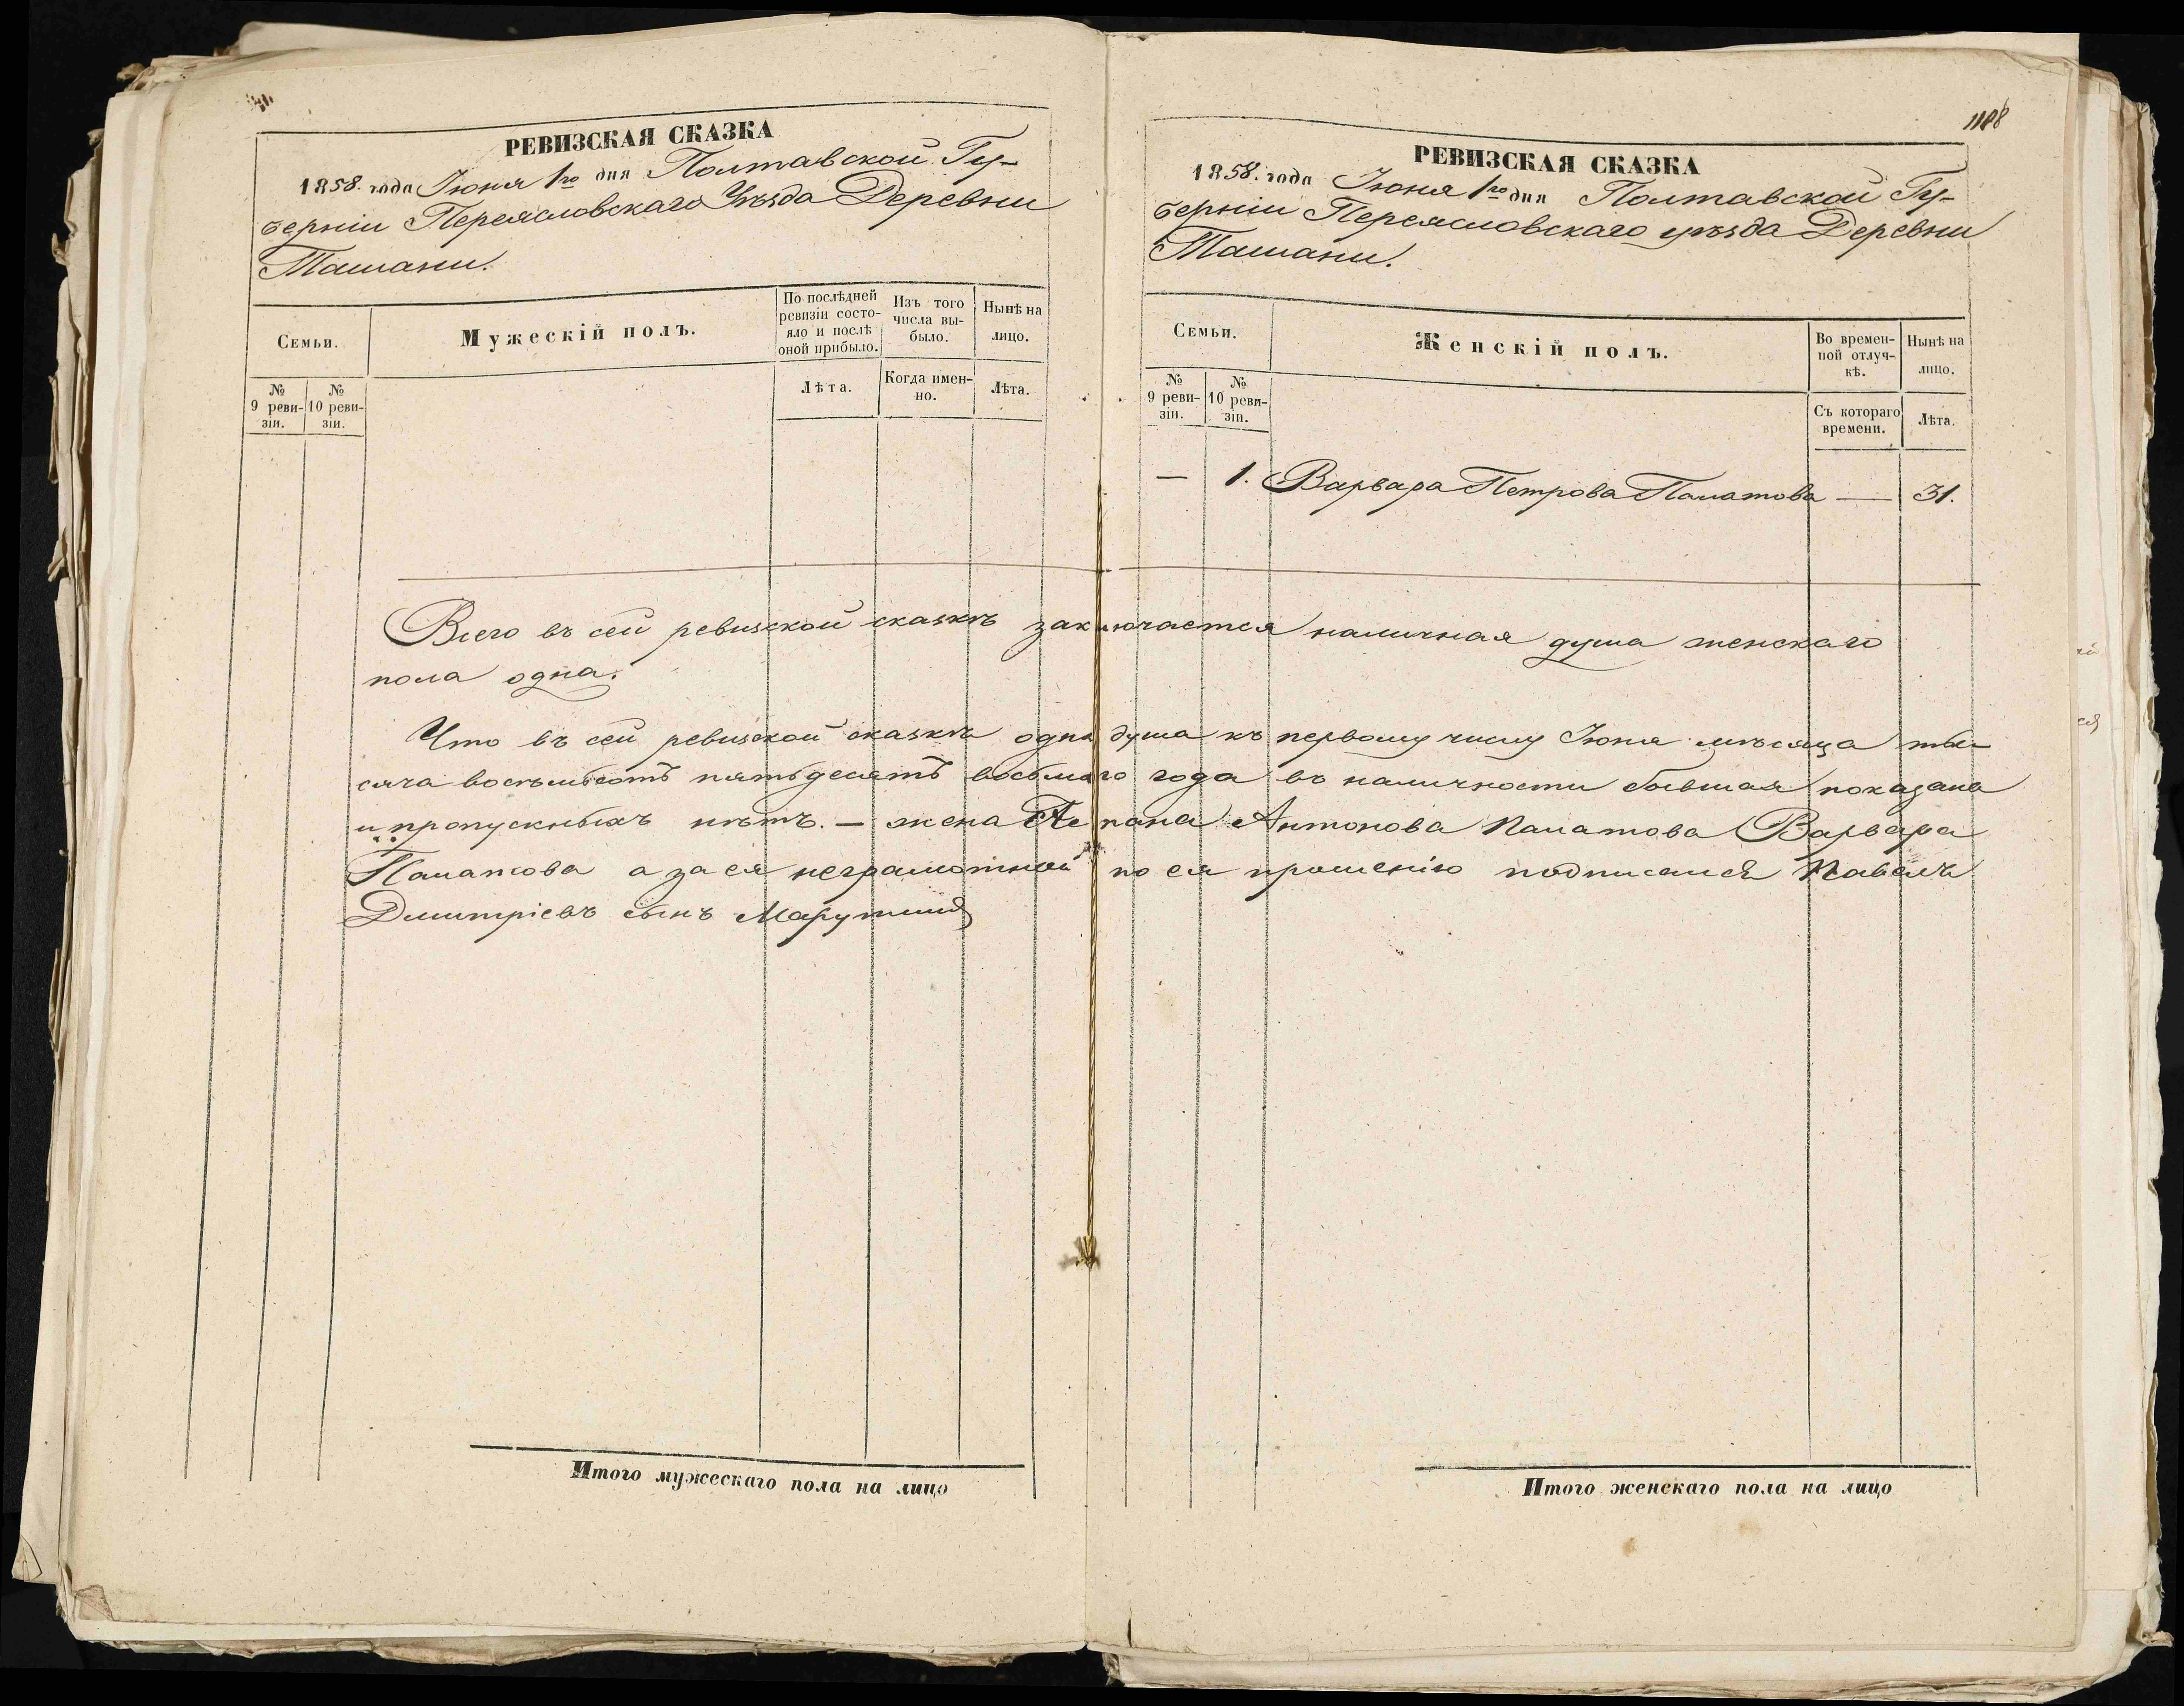 РЕВИЗСКАЯ СКАЗКА
1858. года Іюня 1го дня Полтавской Гу-
берніи Переясловскаго Уѣзда Деревни
Ташани.
Семьи.
Мужескій полъ.
По послѣдней
ревизіи состо-
яло и послѣ
оной прибыло.
Изъ того
числа вы-
было.
Нынѣ на
лицо.
№
9 реви-
зіи.
№
10 реви-
зіи.
Лѣта.
Когда имен-
но.
Лѣта.
1188
РЕВИЗСКАЯ СКАЗКА
1858. года Іюня 1го дня Полтавской Гу-
берніи Переясловскаго уѣзда Деревни
Ташани.
Семьи.
Женскій полъ.
Во времен-
ной отлуч-
кѣ.
Нынѣ на
лицо.
№
9 реви-
зіи.
№
10 реви-
зіи.
Съ котораго
времени.
Лѣта.
— 1. Варвара Петрова Палатова — 31.
Всего въ сей ревизской сказкѣ заключается наличная душа женскаго
пола одна.
Что въ сей ревизской сказкѣ одна душа къ первому числу Іюня мѣсяца ты-
сяча восемьсотъ пятьдесятъ восьмаго года въ наличности бывшая показана
и пропускныхъ нѣтъ. — жена Степана Антонова Палатова Варвара
Палатова а за ея неграмотной по ея прошенію подписался Павелъ
Дмитріевъ сынъ
Итого мужескаго пола на лицо
Итого женскаго пола на лицо